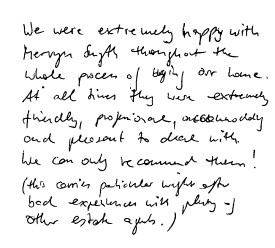 We were extremely happy with
Mervyn Smyth throughout the
whole process of buying our home.
At all times they were extremely
friendly, professional, accommodating
and pleasant to deal with.
We can only recommend them!
(this carries particular weight after
bad experiences with plenty of
other estate agents.)